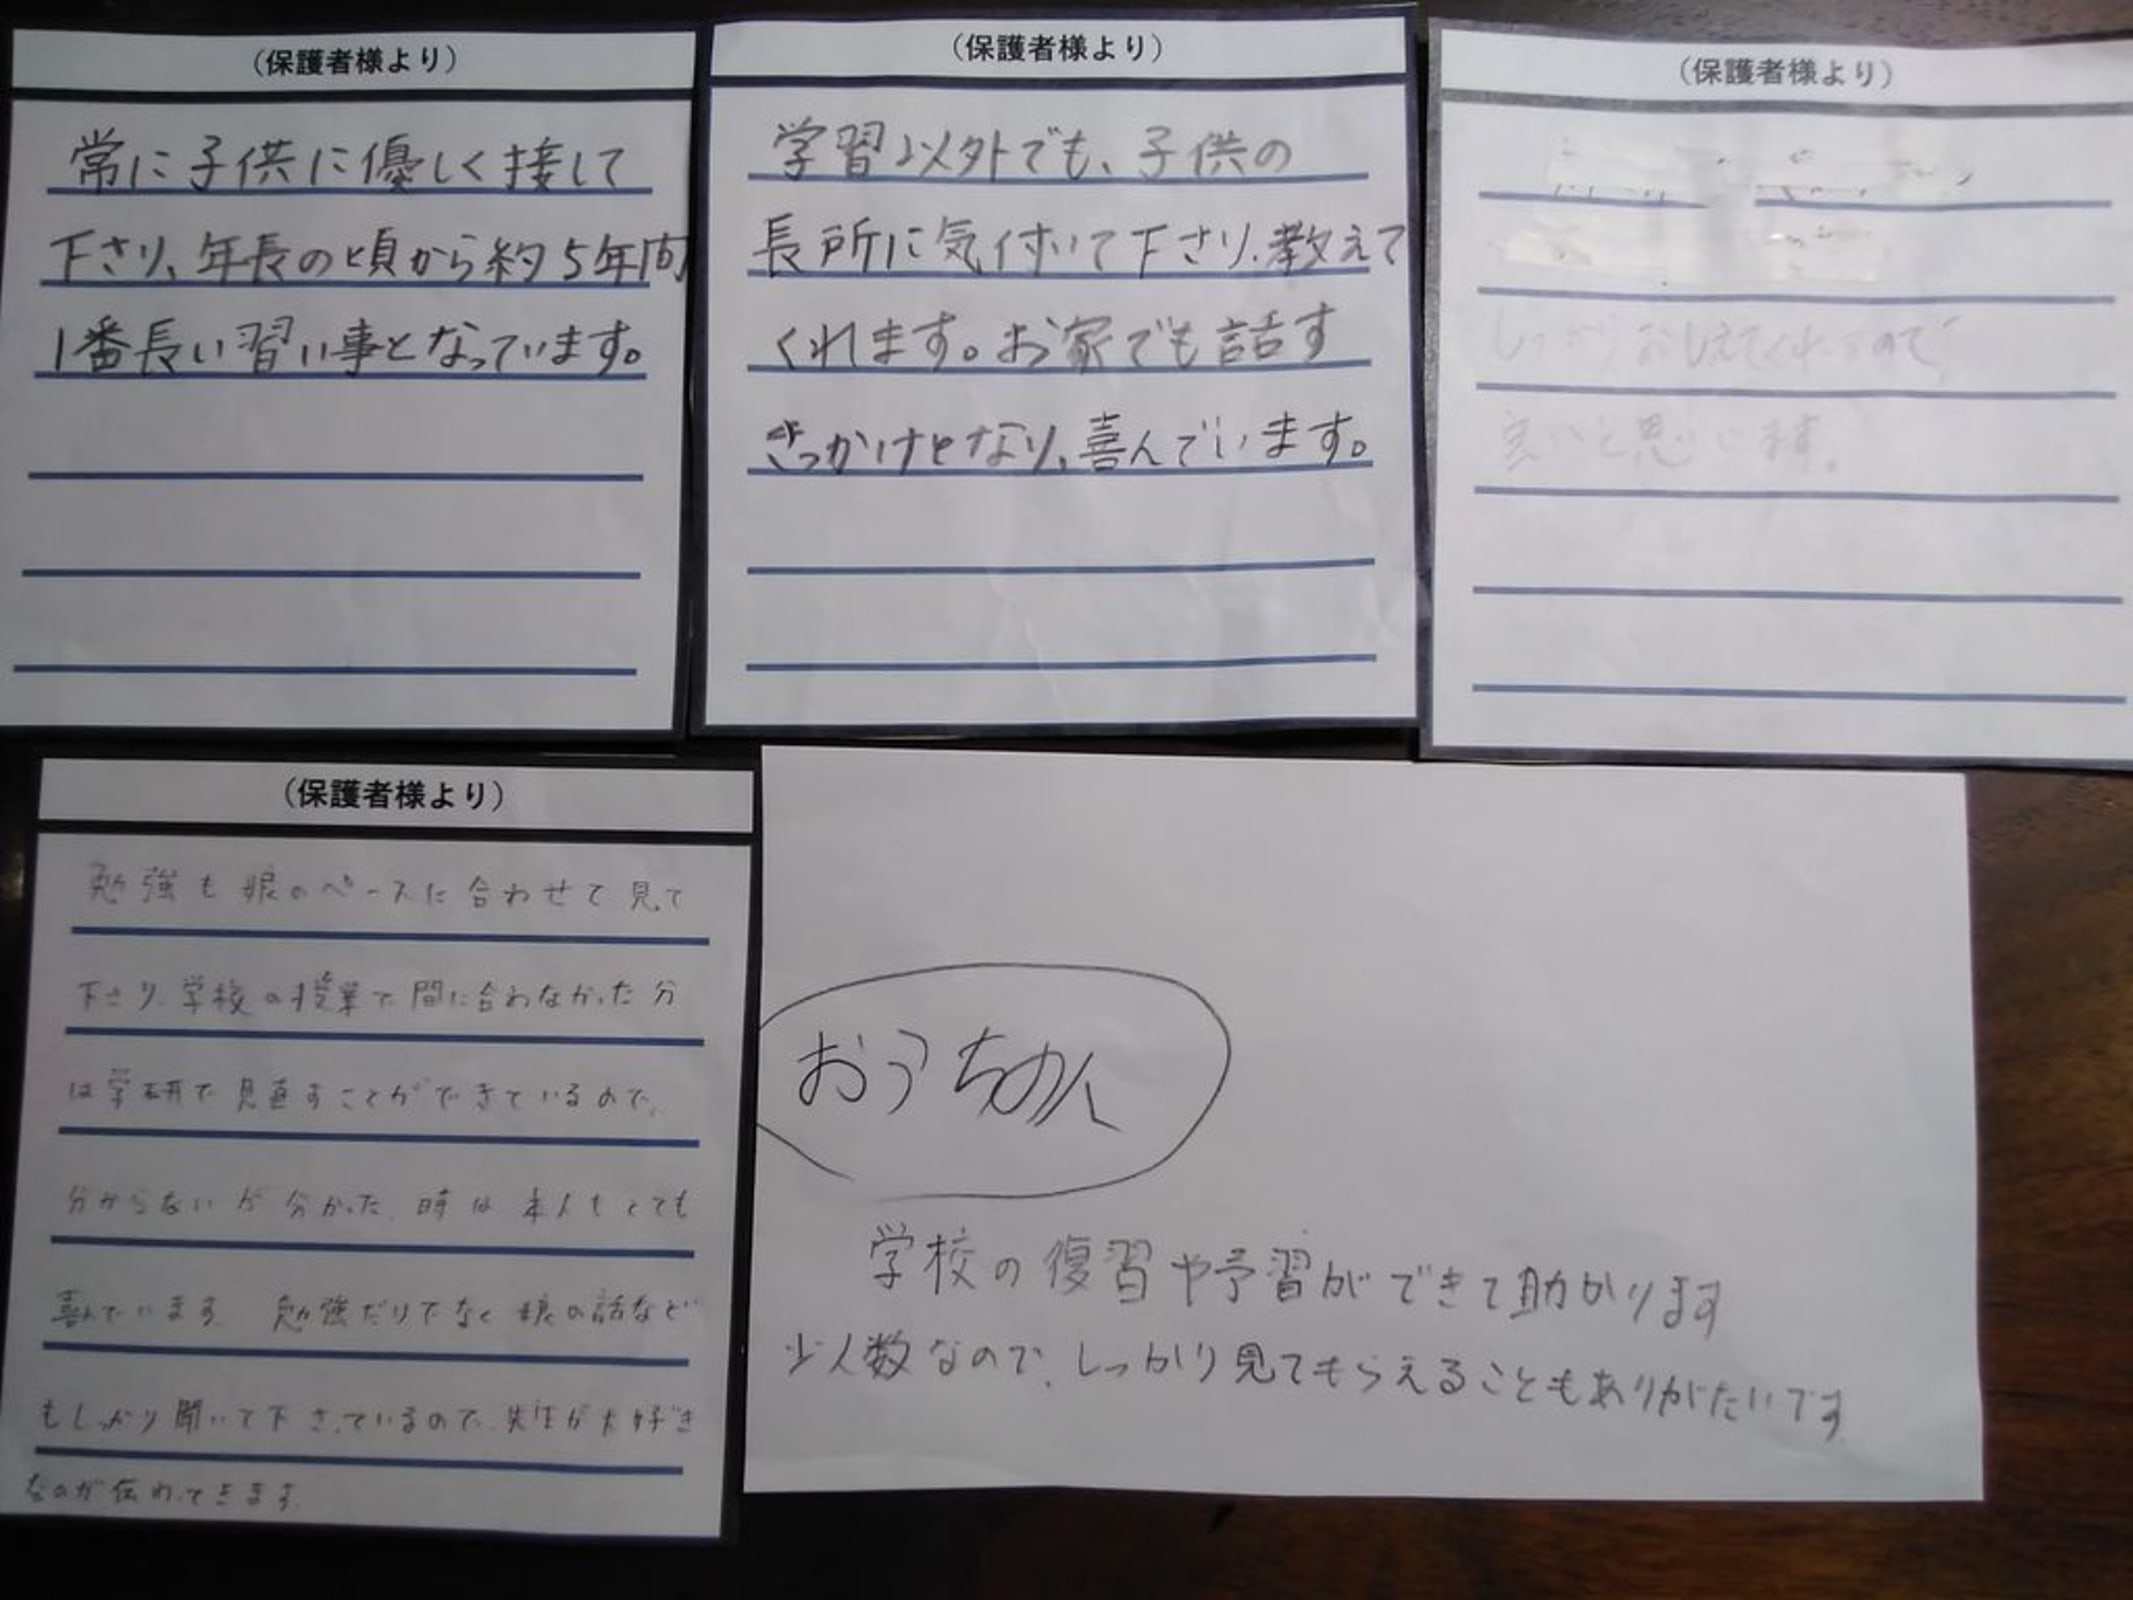 （保護者様より）
常に子供に優しく接して
下さり、年長の頃から約5年間
1番長い習い事となっています。
（保護者様より）
学習以外でも、子供の
長所に気付いて下さり、教えて
くれます。お家でも話す
きっかけとなり、喜んでいます。
（保護者様より）
しっかりおしえてくれるので、
良いと思います。
（保護者様より）
勉強も娘のペースに合わせて見て
下さり、学校の授業で間に合わなかった分
は学研で見直すことができているので、
分からないが分かった時は本人もとても
喜んでいます。勉強だけでなく娘の話なども
しっかり聞いて下さっているので、先生が大好き
なのが伝わってきます。
おうちの人
学校の復習や予習ができて助かります
少人数なので、しっかり見てもらえることもありがたいです